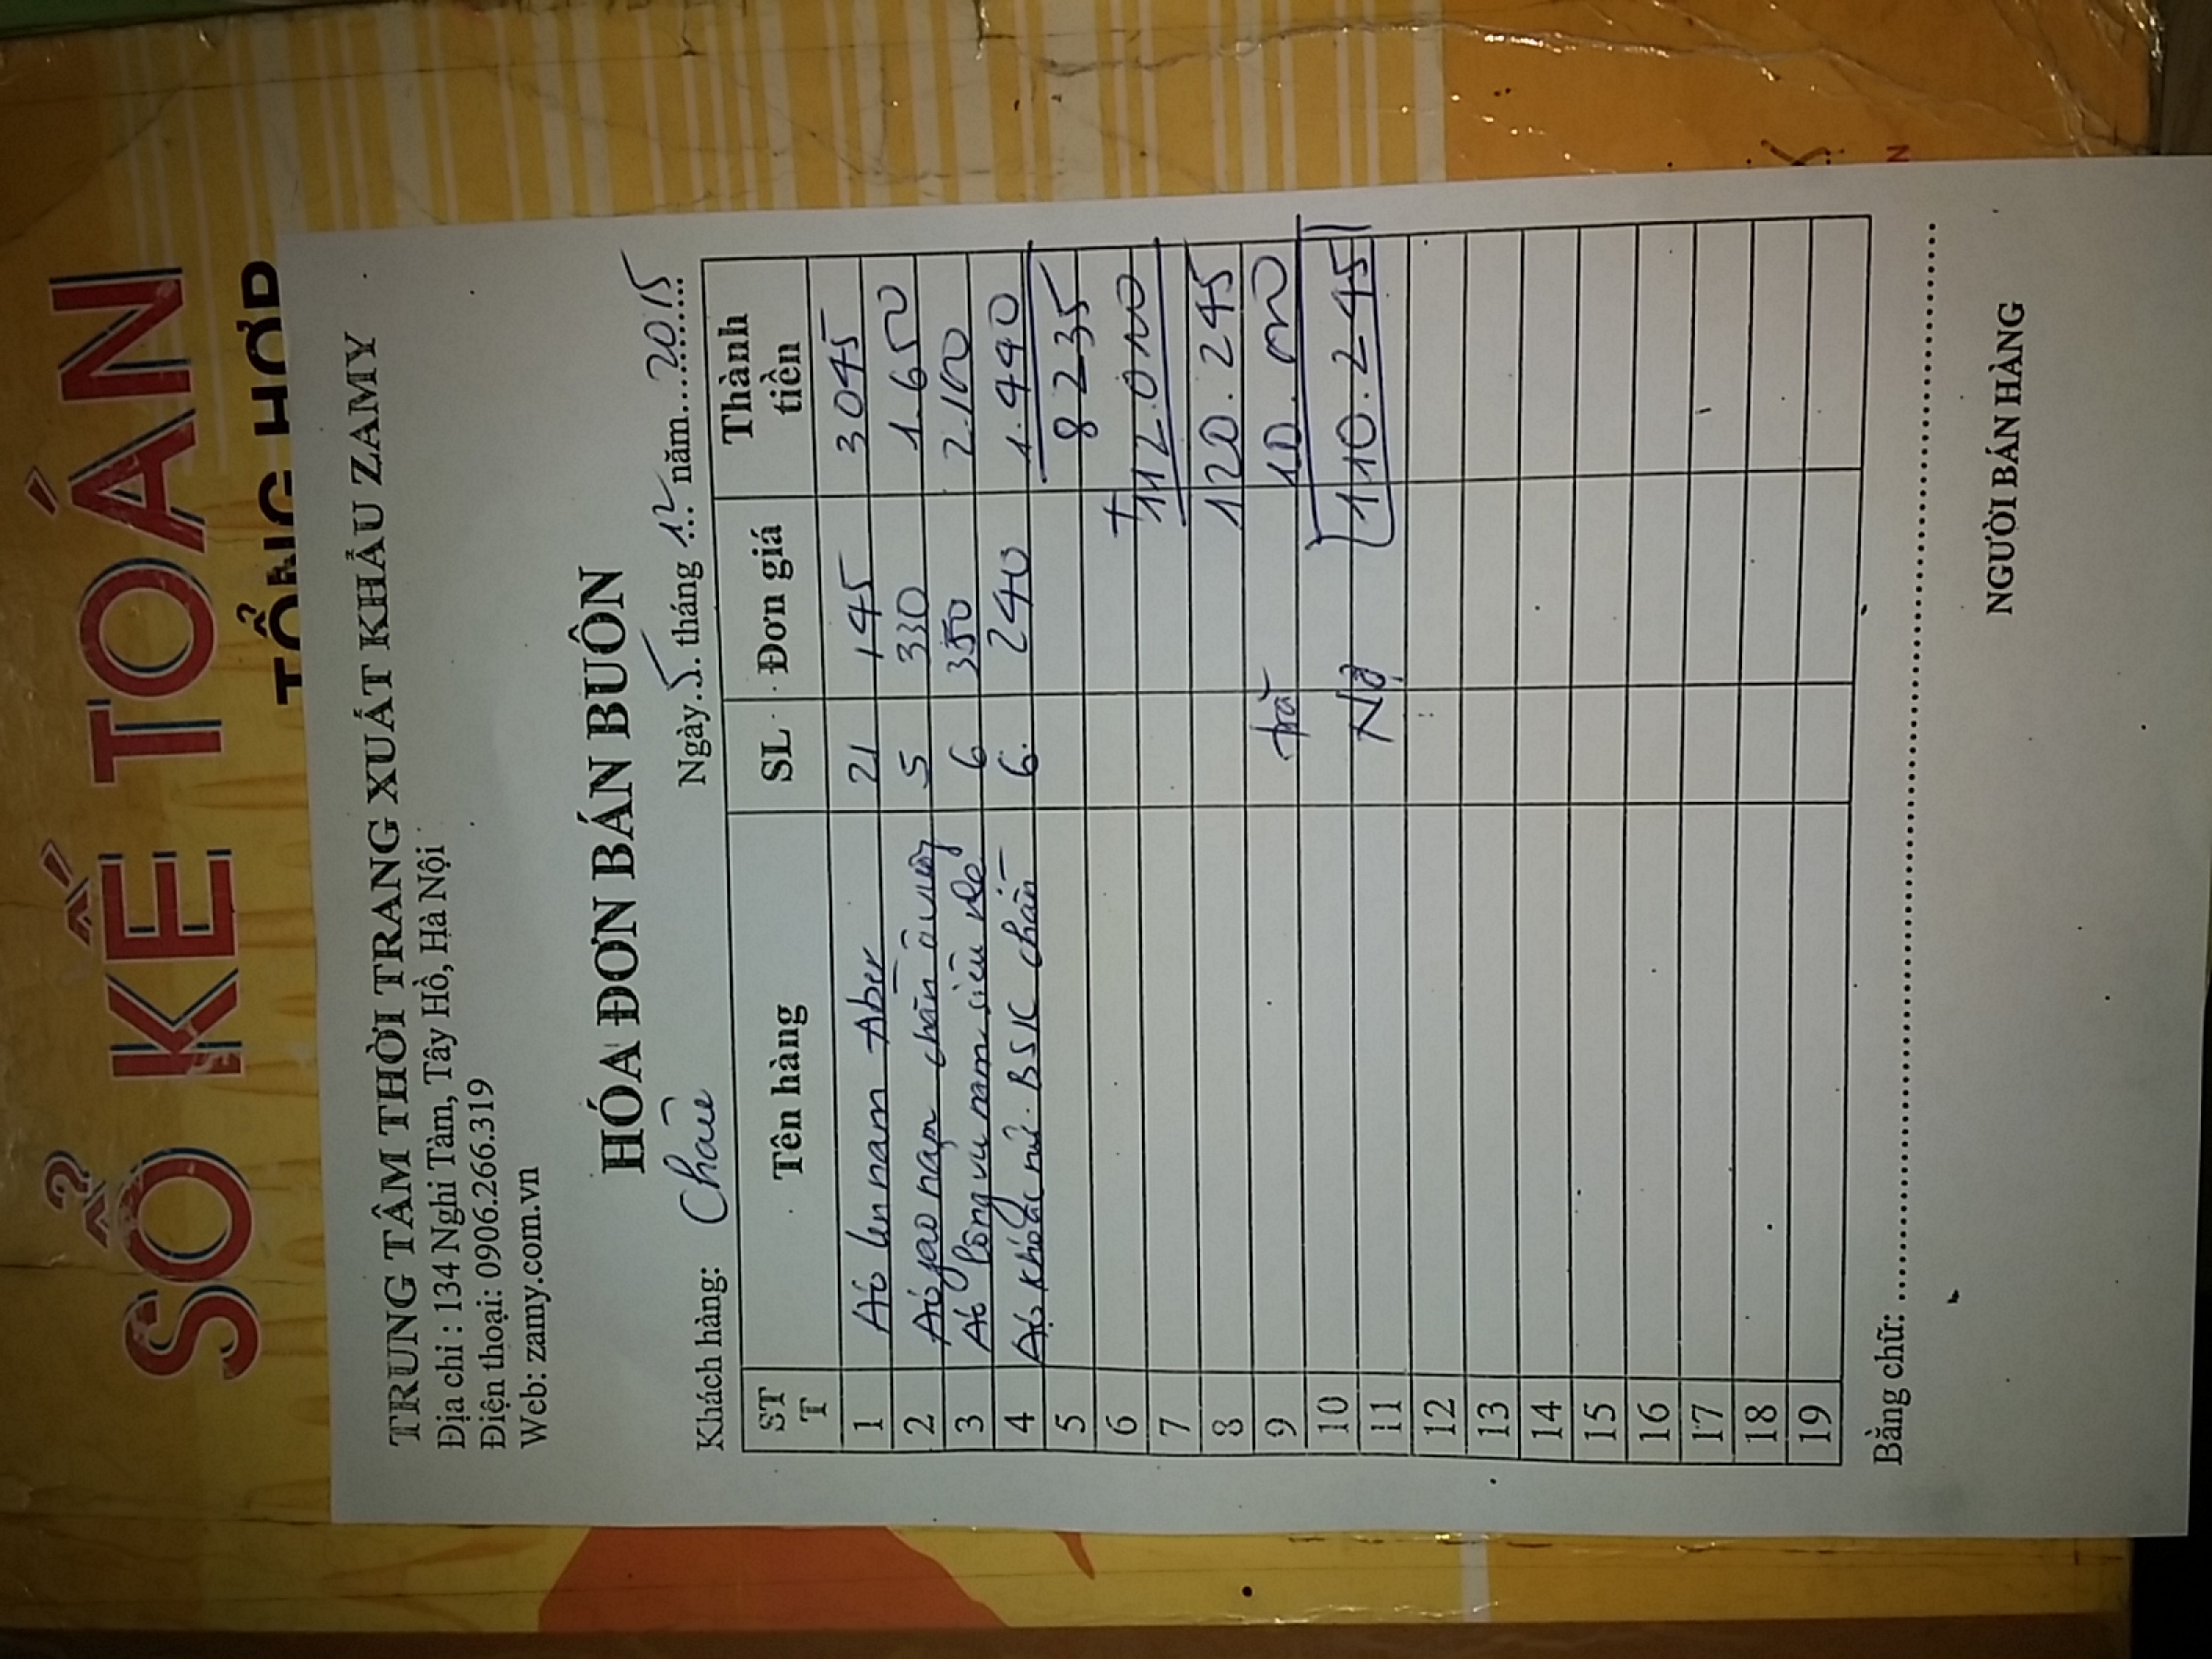 SỔ KẾ TOÁN
TỔNG HỢP
TRUNG TÂM THỜI TRANG XUẤT KHẨU ZAMY
Địa chỉ : 134 Nghi Tàm, Tây Hồ, Hà Nội
Điện thoại: 0906.266.319
Web: zamy.com.vn
HÓA ĐƠN BÁN BUÔN
Ngày 5 tháng 12 năm 2015
Khách hàng: Châu
STT Tên hàng SL Đơn giá Thành tiền
1 Áo len nam Aber 21 145 3045
2 Áo nam chần 5 330 1.650
3 Áo lông vũ nam siêu nhẹ 6 350 2.100
4 Áo khoác nữ BSK chần 6 240 1.440
5 8235
6 +
7 112.010
8 120.245
9 trả 10.000
10
11 Nợ 110.245
12
13
14
15
16
17
18
19
Bằng chữ:
NGƯỜI BÁN HÀNG